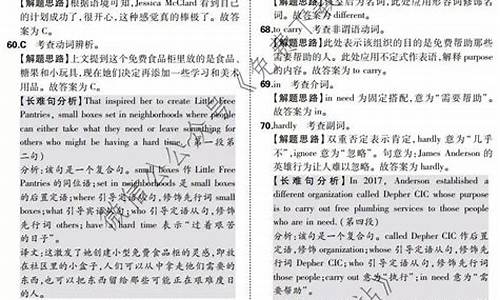 【解题思路】根据语境可知,Jessica McClard 看到自己
的计划成功了,很开心,这种感觉真的棒极了。故答
案为 C。
60.C 考查动词辨析。
【解题思路】上文提到这个免费食品柜里放的是食品、
糖果和小玩具,现在她们决定再添加一些学习和美术
用品。故答案为 C。
【长难句分析】That inspired her to create Little Free
Pantries, small boxes set in neighborhoods where people
can either take what they need or leave something for
others who might be having a hard time.(第一段第
二句)
分析:该句是一个复合句。small boxes 作 Little Free
Pantries 的同位语; set in neighborhoods 是 small boxes
的后置定语;where 引导定语从句,修饰先行词 small
boxes;what 引导宾语从句;who 引导定语从句,修饰先
行词 others; have a hard time 表示“过着艰苦
的日子”。
译文:这激发了她创建小型免费食品柜的灵感,即放
在社区里的小盒子,人们可以从中拿走他们需要的
东西,也可以把东西留给那些可能正在艰难度日
的人。
后为名词,此处应用形容词修饰名
词。故答案为 different。
68.to carry 考查非谓语动词。
【解题思路】此处表示该组织的目的是免费帮助那些
需要帮助的人。此处应用不定式作表语,解释 purpose
的内容。故答案为 to carry。
69.in 考查介词。
【解题思路】in need 为固定搭配,意为“需要帮助”。
故答案为 in。
70.hardly 考查副词。
【解题思路】双重否定表示肯定,hardly 意为“几乎
不”,ignore 意为“忽略”。句意为:James Anderson 的
英雄行为让人难以忽略。故答案为 hardly。
【长难句分析】In 2017, Anderson established a
different organization called Depher CIC whose purpose
is to carry out free plumbing services to those people
who are in need.(第四段)
分析:该句是一个复合句。called Depher CIC 作后置
定语,修饰 organization; whose 引导定语从句,修饰先
行词 Depher CIC; who 引导定语从句,修饰先行词
those people; carry out 意为“执行”; in need 意为“需
要帮助的”。